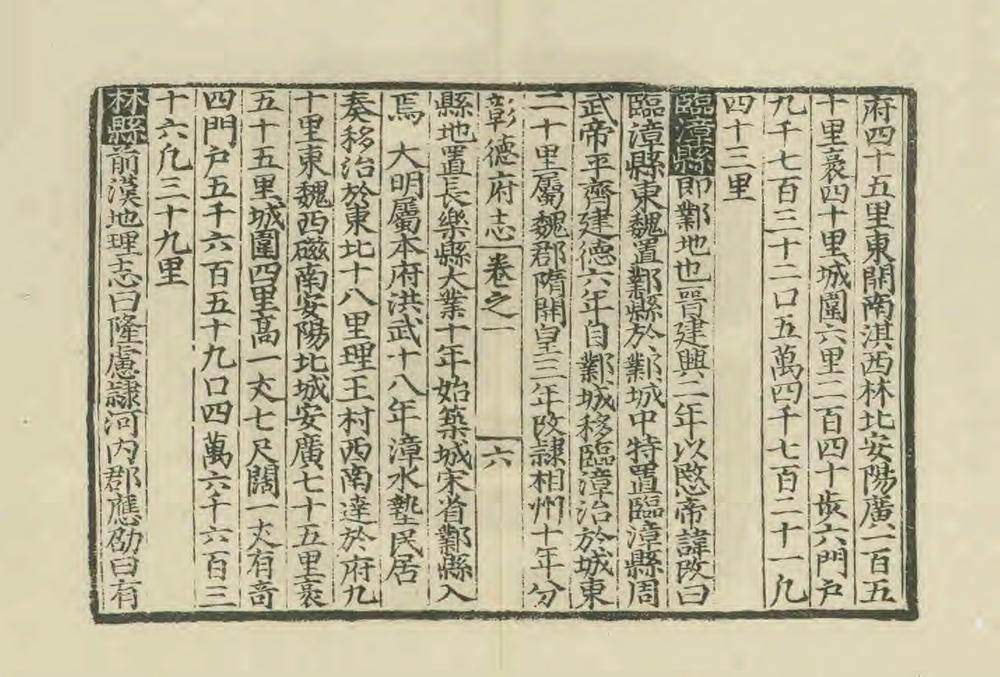 府四十五里東開南淇西林北安陽廣一百五
十里袤四十里城圍六里二百四十步六門户
九千七百三十二口五萬四千七百二十一凡
四十三里
臨漳縣即鄴地也晉建興二年以愍帝諱改曰
臨漳縣東魏置鄴縣於鄴城中特置臨漳縣周
武帝平齊建德六年自鄴城移臨漳治於城東
二十里屬魏郡隋開皇三年改隸相州十年分
彰德府志 卷之一 六
縣地置長樂縣大業十年始築城宋省鄴縣入
焉 大明屬本府洪武十八年漳水墊民居
奏移治於東北十八里理王村西南達於府九
十里東魏西磁南安陽北城安廣七十五里袤
五十五里城圍四里高一丈七尺闊一丈有奇
四門户五千六百五十九口四萬六千六百三
十六凡三十九里
林縣前漢地理志曰隆慮隸河内郡應劭曰有